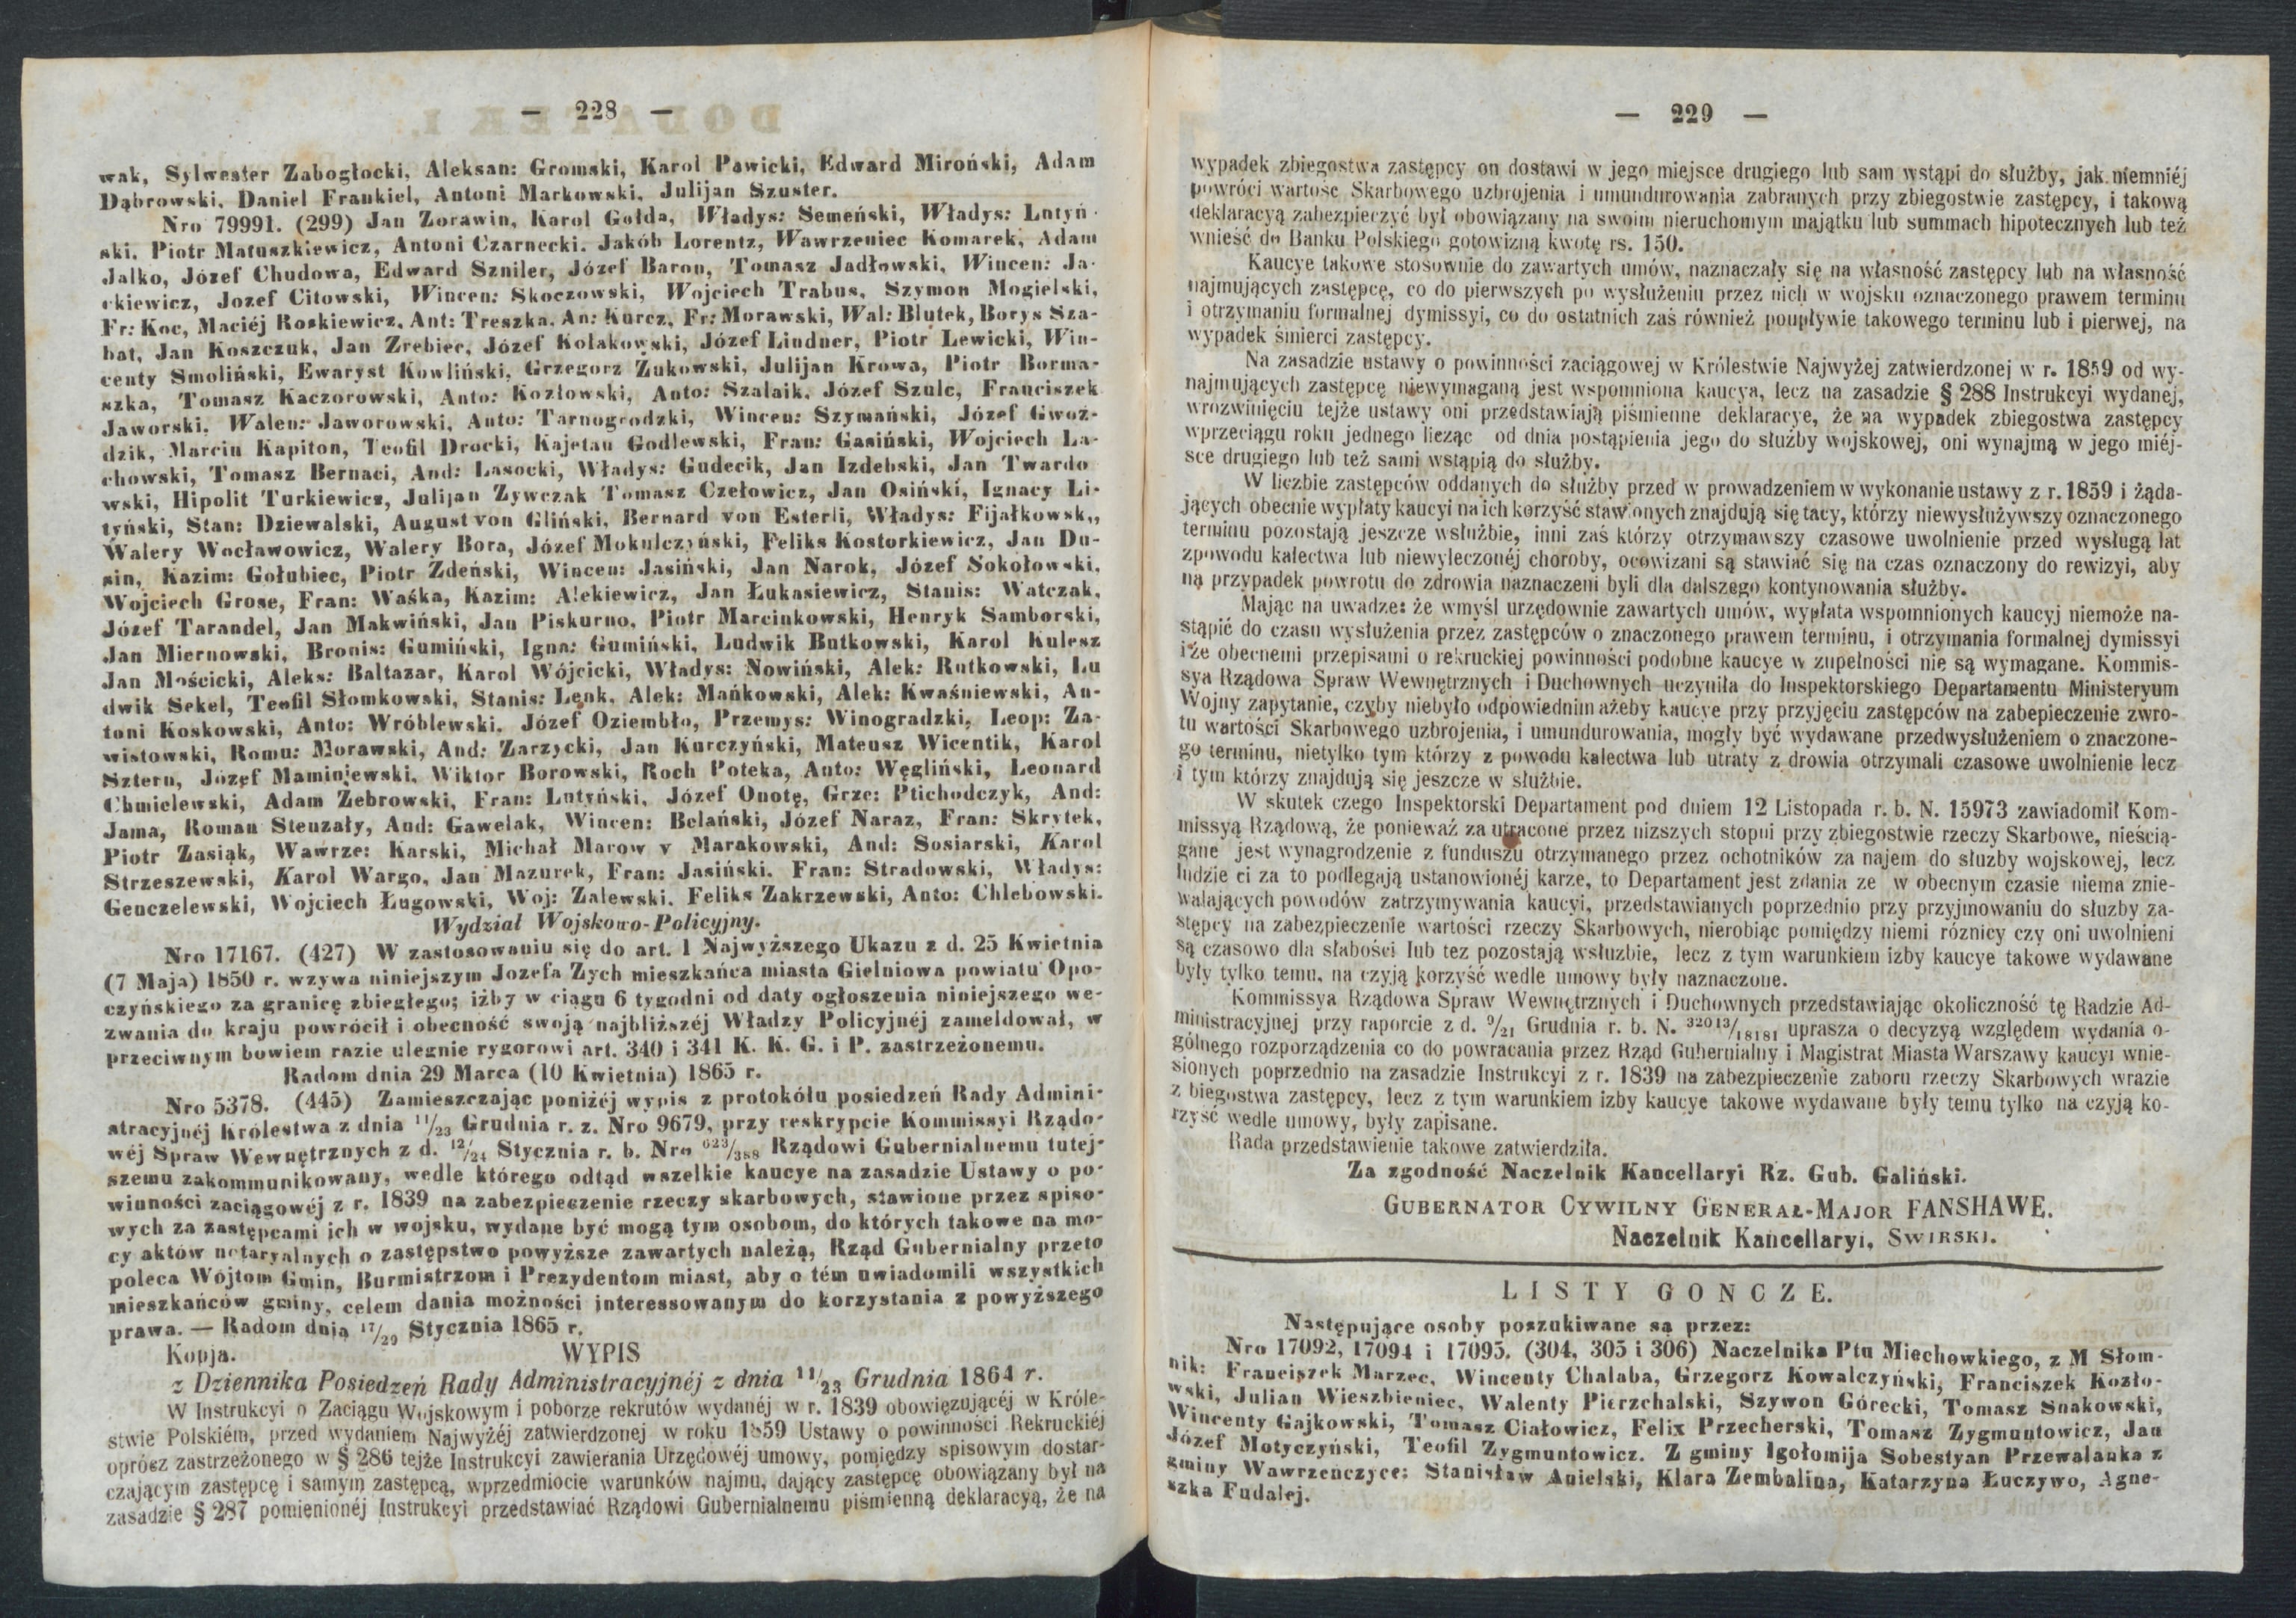 — 228 —
wak, Sylwester Zabogłocki, Aleksan: Gromski, Karol Pawicki, Edward Miroński, Adam
Dąbrowski, Daniel Frankiel, Antoni Markowski, Julijan Szuster.
Nro 79991. (299) Jan Zorawin, Karol Gołda, Władys: Semeński, Władys: Lutyń-
ski, Piotr Matuszkiewicz, Antoni Czarnecki, Jakób Lorentz, Wawrzeniec Komarek, Adam
Jalko, Józef Chudowa, Edward Szniler, Józef Baron, Tomasz Jadłowski, Wincen: Ja-
ckiewicz, Jozef Citowski, Wincen: Skoczowski, Wojciech Trabus, Szymon Mogielski,
Fr: Koc, Maciéj Roskiewicz, Ant: Treszka, An: Kurcz, Fr: Morawski, Wal: Blutek, Borys Sza-
bat, Jan Koszczuk, Jan Zrebiec, Józef Kołakowski, Józef Lindner, Piotr Lewicki, Win-
centy Smoliński, Ewaryst Kowliński, Grzegorz Żukowski, Julijan Krowa, Piotr Borma-
szka, Tomasz Kaczorowski, Anto: Kozłowski, Anto: Szalaik, Józef Szulc, Franciszek
Jaworski, Walen: Jaworowski, Anto: Tarnogrodzki, Wincen: Szymański, Józef Gwoź-
dzik, Marcin Kapiton, Teofil Drocki, Kajetan Godlewski, Fran: Gasiński, Wojciech La-
chowski, Tomasz Bernaci, And: Lasocki, Władys: Gudecik, Jan Izdebski, Jan Twardo
wski, Hipolit Turkiewicz, Julijan Zywczak Tomasz Czełowicz, Jan Osiński, Ignacy Li-
tyński, Stan: Dziewalski, August von Gliński, Bernard von Esterli, Władys: Fijałkowsk,,
Walery Wocławowicz, Walery Bora, Józef Mokulczyński, Feliks Kostorkiewicz, Jan Du-
sin, Kazim: Gołubiec, Piotr Zdeński, Wincen: Jasiński, Jan Narok, Józef Sokołowski,
Wojciech Grose, Fran: Waśka, Kazim: Alekiewicz, Jan Łukasiewicz, Stanis: Watczak,
Józef Tarandel, Jan Makwiński, Jan Piskurno, Piotr Marcinkowski, Henryk Samborski,
Jan Miernowski, Bronis: Gumiński, Igna: Gumiński, Ludwik Butkowski, Karol Kulesz
Jan Mościcki, Aleks: Baltazar, Karol Wójcicki, Władys: Nowiński, Alek: Rutkowski, Lu
dwik Sekel, Teofil Słomkowski, Stanis: Lenk, Alek: Mańkowski, Alek: Kwaśniewski, An-
toni Koskowski, Anto: Wróblewski, Józef Oziembło, Przemys: Winogradzki, Leop: Za-
wistowski, Romu: Morawski, And: Zarzycki, Jan Kurczyński, Mateusz Wicentik, Karol
Sztern, Józef Maminjewski, Wiktor Borowski, Roch Poteka, Anto: Węgliński, Leonard
Chmielewski, Adam Żebrowski, Fran: Lutyński, Józef Onotę, Grze: Ptichodczyk, And:
Jama, Roman Stenzały, And: Gawelak, Wincen: Belański, Józef Naraz, Fran: Skrytek,
Piotr Zasiąk, Wawrze: Karski, Michał Marow v Marakowski, And: Sosiarski, Karol
Strzeszewski, Karol Wargo, Jan Mazurek, Fran: Jasiński, Fran: Stradowski, Władys:
Genczelewski, Wojciech Ługowski, Woj: Zalewski, Feliks Zakrzewski, Anto: Chlebowski.
Wydział Wojskowo-Policyjny.
Nro 17167. (427) W zastosowaniu się do art. 1 Najwyższego Ukazu z d. 25 Kwietnia
(7 Maja) 1850 r. wzywa niniejszym Jozefa Zych mieszkańca miasta Gielniowa powiatu Opo-
czyńskiego za granicę zbiegłego; iżby w ciągu 6 tygodni od daty ogłoszenia niniejszego we-
zwania do kraju powrócił i obecność swoją najbliższéj Władzy Policyjnéj zameldował, w
przeciwnym bowiem razie ulegnie rygorowi art. 340 i 341 K. K. G. i P. zastrzeżonemu.
Radom dnia 29 Marca (10 Kwietnia) 1865 r.
Nro 5378. (445) Zamieszczając poniżéj wypis z protokółu posiedzeń Rady Admini-
stracyjnéj Królestwa z dnia 11/23 Grudnia r. z. Nro 9679, przy reskrypcie Kommissyi Rządo-
wéj Spraw Wewnętrznych z d. 12/24 Stycznia r. b. Nro 623/388 Rządowi Gubernialnemu tutej-
szemu zakommunikowany, wedle którego odtąd wszelkie kaucye na zasadzie Ustawy o po-
winności zaciągowéj z r. 1839 na zabezpieczenie rzeczy skarbowych, stawione przez spiso-
wych za zastępcami ich w wojsku, wydane być mogą tym osobom, do których takowe na mo-
cy aktów notaryalnych o zastępstwo powyższe zawartych należą, Rząd Gubernialny przeto
poleca Wójtom Gmin, Burmistrzom i Prezydentom miast, aby o tém uwiadomili wszystkich
mieszkańców gminy, celem dania możności interessowanym do korzystania z powyższego
prawa. — Radom dnia 17/29 Stycznia 1865 r.
Kopja. WYPIS
z Dziennika Posiedzeń Rady Administracyjnéj z dnia 11/23 Grudnia 1864 r.
W Instrukcyi o Zaciągu Wojskowym i poborze rekrutów wydanéj w r. 1839 obowięzującéj w Króle-
stwie Polskiém, przed wydaniem Najwyżéj zatwierdzonej w roku 1859 Ustawy o powinności Rekruckiéj
oprócz zastrzeżonego w § 286 tejże Instrukcyi zawierania Urzędowéj umowy, pomiędzy spisowym dostar-
czającym zastępcę i samym zastępcą, wprzedmiocie warunków najmu, dający zastępcę obowiązany był na
zasadzie § 287 pomienionéj Instrukcyi przedstawiać Rządowi Gubernialnemu piśmienną deklaracyą, że na
— 229 —
wypadek zbiegostwa zastępcy on dostawi w jego miejsce drugiego lub sam wstąpi do służby, jak niemniéj
powróci wartość Skarbowego uzbrojenia i umundurowania zabranych przy zbiegostwie zastępcy, i takową
deklaracyą zabezpieczyć był obowiązany na swoim nieruchomym majątku lub summach hipotecznych lub też
wnieść do Banku Polskiego gotowizną kwotę rs. 150.
Kaucye takowe stosownie do zawartych umów, naznaczały się na własność zastępcy lub na własność
najmujących zastępcę, co do pierwszych po wysłużeniu przez nich w wojsku oznaczonego prawem terminu
i otrzymaniu formalnej dymissyi, co do ostatnich zaś również poupływie takowego terminu lub i pierwej, na
wypadek śmierci zastępcy.
Na zasadzie ustawy o powinności zaciągowej w Królestwie Najwyżej zatwierdzonej w r. 1859 od wy-
najmujących zastępcę niewymaganą jest wspomniona kaucya, lecz na zasadzie § 288 Instrukcyi wydanej,
wrozwinięciu tejże ustawy oni przedstawiają piśmienne deklaracye, że na wypadek zbiegostwa zastępcy
wprzeciągu roku jednego licząc od dnia postąpienia jego do służby wojskowej, oni wynajmą w jego miéj-
sce drugiego lub też sami wstąpią do służby.
W liczbie zastępców oddanych do służby przed w prowadzeniem w wykonanie ustawy z r. 1859 i żąda-
jących obecnie wypłaty kaucyi na ich korzyść stawionych znajdują się tacy, którzy niewysłużywszy oznaczonego
terminu pozostają jeszcze wsłużbie, inni zaś którzy otrzymawszy czasowe uwolnienie przed wysługą lat
zpowodu kalectwa lub niewyleczonéj choroby, ocowizani są stawiać się na czas oznaczony do rewizyi, aby
na przypadek powrotu do zdrowia naznaczeni byli dla dalszego kontynowania służby.
Mając na uwadze: że wmyśl urzędownie zawartych umów, wypłata wspomnionych kaucyj niemoże na-
stąpić do czasu wysłużenia przez zastępców o znaczonego prawem terminu, i otrzymania formalnej dymissyi
i że obecnemi przepisami o rekruckiej powinności podobne kaucye w zupełności nie są wymagane. Kommis-
sya Rządowa Spraw Wewnętrznych i Duchownych uczyniła do Inspektorskiego Departamentu Ministeryum
Wojny zapytanie, czyby niebyło odpowiednim ażeby kaucye przy przyjęciu zastępców na zabepieczenie zwro-
tu wartości Skarbowego uzbrojenia, i umundurowania, mogły być wydawane przedwysłużeniem o znaczone-
go terminu, nietylko tym którzy z powodu kalectwa lub utraty z drowia otrzymali czasowe uwolnienie lecz
i tym którzy znajdują się jeszcze w służbie.
W skutek czego Inspektorski Departament pod dniem 12 Listopada r. b. N. 15973 zawiadomił Kom-
missyą Rządową, że ponieważ za utracone przez nizszych stopni przy zbiegostwie rzeczy Skarbowe, nieścią-
gane jest wynagrodzenie z funduszu otrzymanego przez ochotników za najem do służby wojskowej, lecz
ludzie ci za to podlegają ustanowionéj karze, to Departament jest zdania ze w obecnym czasie niema znie-
walających powodów zatrzymywania kaucyi, przedstawianych poprzednio przy przyjmowaniu do służby za-
stępcy na zabezpieczenie wartości rzeczy Skarbowych, nierobiąc pomiędzy niemi róznicy czy oni uwolnieni
są czasowo dla słabości lub tez pozostają wsłuzbie, lecz z tym warunkiem izby kaucye takowe wydawane
były tylko temu, na czyją korzyść wedle umowy były naznaczone.
Kommissya Rządowa Spraw Wewnętrznych i Duchownych przedstawiając okoliczność tę Radzie Ad-
ministracyjnej przy raporcie z d. 9/21 Grudnia r. b. N. 32013/18181 uprasza o decyzyą względem wydania o-
gólnego rozporządzenia co do powracania przez Rząd Gubernialny i Magistrat Miasta Warszawy kaucyi wnie-
sionych poprzednio na zasadzie Instrukcyi z r. 1839 na zabezpieczenie zaboru rzeczy Skarbowych wrazie
z biegostwa zastępcy, lecz z tym warunkiem izby kaucye takowe wydawane były temu tylko na czyją ko-
rzyść wedle umowy, były zapisane.
Rada przedstawienie takowe zatwierdziła.
Za zgodność Naczelnik Kancellaryi Rz. Gub. Galiński.
GUBERNATOR CYWILNY GENERAŁ-MAJOR FANSHAWE.
Naczelnik Kancellaryi, SWIRSKI.
LISTY GONCZE.
Następujące osoby poszukiwane są przez:
Nro 17092, 17094 i 17095. (304, 305 i 306) Naczelnika Ptu Miechowkiego, z M Słom-
nik: Franciszek Marzec, Wincenty Chalaba, Grzegorz Kowalczyński, Franciszek Kozło-
wski, Julian Wieszbieniec, Walenty Pietrzchalski, Szywon Górecki, Tomasz Snakowski,
Wincenty Gajkowski, Tomasz Ciałowicz, Felix Przecherski, Tomasz Zygmuntowicz, Jan
Józef Motyczyński, Teofil Zygmuntowicz. Z gminy Igołomija Sobestyan Przewalanka z
gminy Wawrzenczyce: Stanisław Anielski, Klara Zembalina, Katarzyna Łuczywo, Agne-
szka Fudalej.